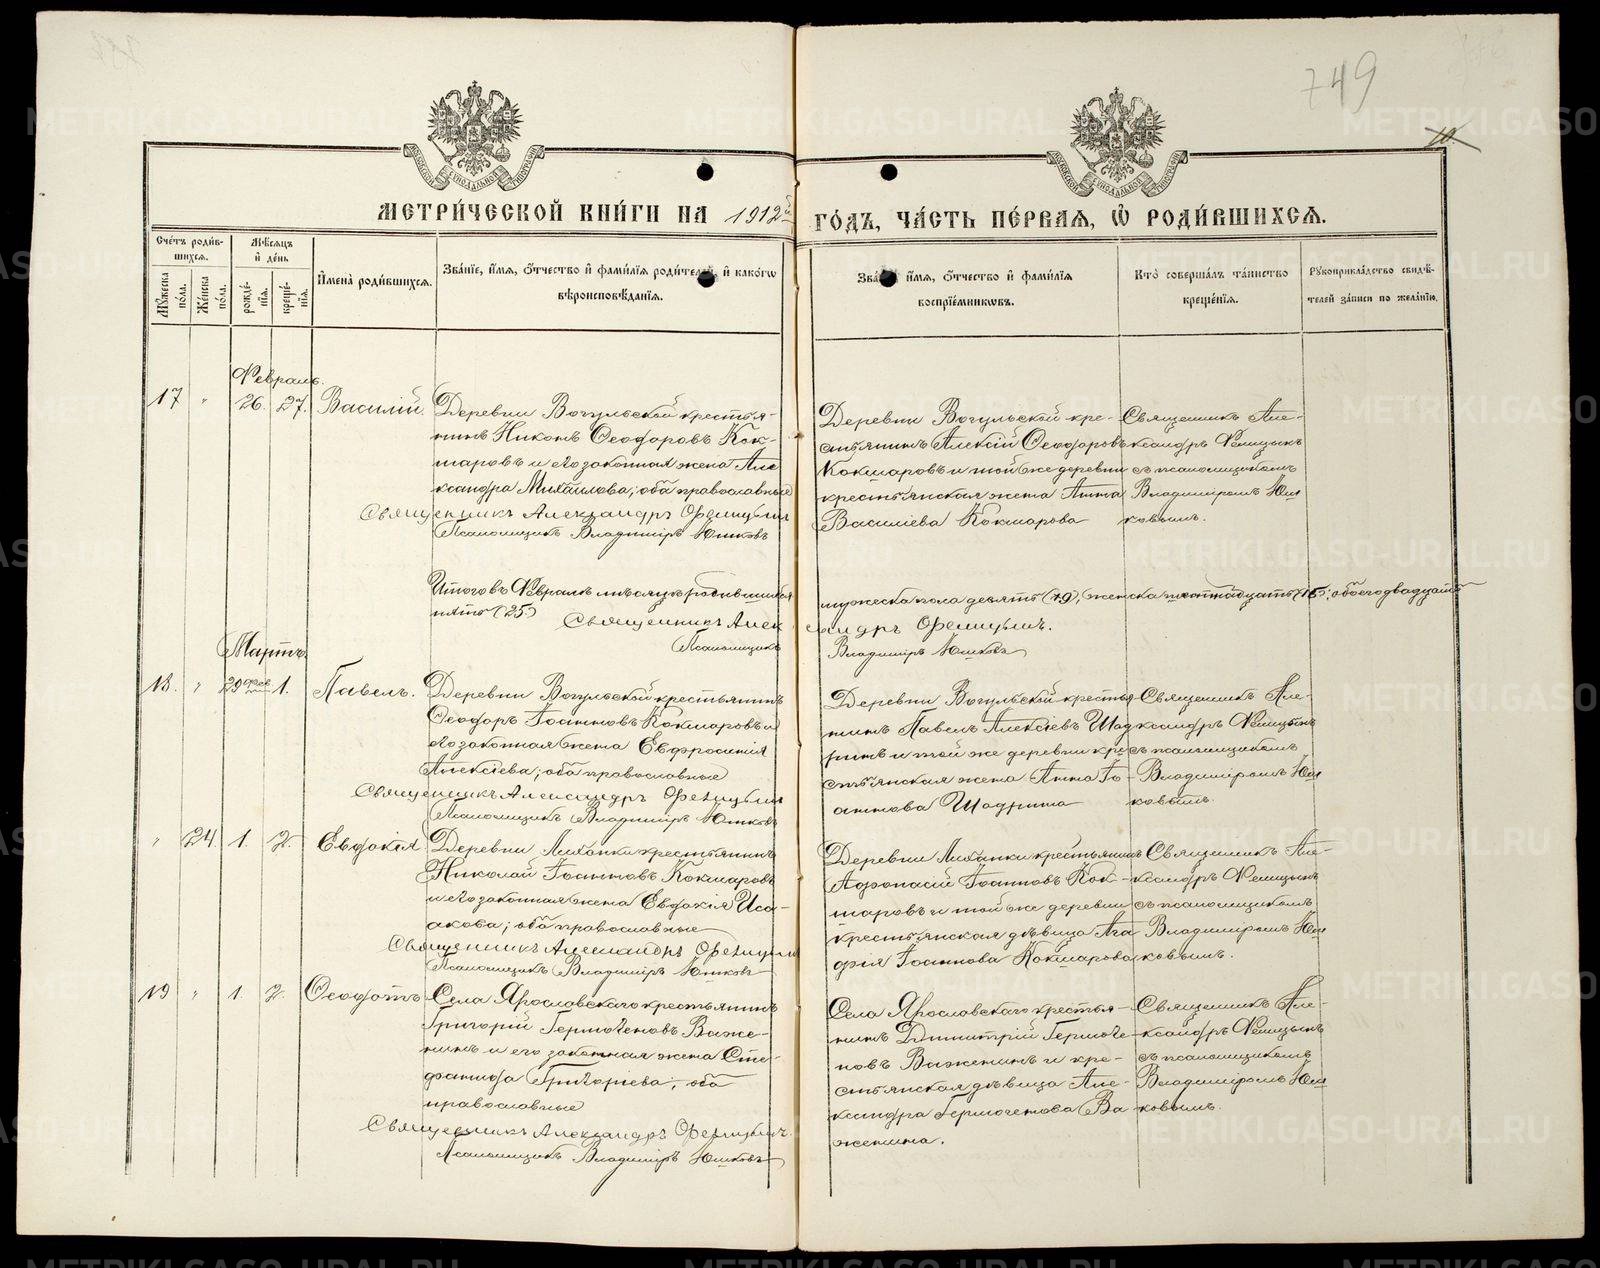 749
10.
МЕТРИ́ЧЕСКОЙ КНИ́ГИ НА 1912й ГО́ДЪ, ЧА́СТЬ ПЕ́РВАЯ, Ѽ РОДИ́ВШИХСЯ.
Сче́тъ роди́в-
шихся.
Мѣ́сяцъ
и҆ де́нь
Мꙋ́жеска
по́ла.
Же́нска
по́ла.
рожде́-
нїя.
креще́-
нїя.
И҆мена̀ роди́вшихся.
Зва́нїе, и҆́мя, ѻ҆́тчество и҆ фами́лїя роди́телей, и҆ какогѡ
вѣроисповѣ́данїя.
Зва́нїе, и҆́мя, ѻ҆́тчество и҆ фами́лїя
воспрїе́мникѡвъ.
Кто̀ соверша́лъ та́инство
креще́нїя.
Рꙋкоприкла́дство свидѣ́-
телей за́писи по жела́нїю.
Февраль.
17 " 26. 27. Василій.
Деревни Вогульской крестья-
нинъ Никонъ Ѳеодоровъ Кок-
шаровъ и его законная жена Але
ксандра Михайлова; оба православные
Священникъ Александръ Ѳелицынъ
Псаломщикъ Владиміръ Юшковъ
Деревни Вогульской кре-
стьянинъ Алексій Ѳеодоровъ
Кокшаровъ и той же деревни
крестьянская жена Анна
Василіева Кокшарова
Священникъ Але-
ксандръ Фелицынъ
съ псаломщикомъ
Владиміромъ Юш
ковымъ.
Итого въ Февралѣ мѣсяцѣ родившихся мужеска пола девять (9), женска шестнадцать (16), обоего двадцать
пять (25)
Священникъ Александръ Ѳелицынъ.
Псаломщикъ Владиміръ Юшковъ
Мартъ.
18. " 29 фев. 1. Павелъ.
Деревни Вогульской крестьянинъ
Ѳеодоръ Іоанновъ Кокшаровъ и
его законная жена Евфросинія
Алексіева; оба православные
Священникъ Александръ Ѳелицынъ
Псаломщикъ Владиміръ Юшковъ
Деревни Вогульской крестья-
нинъ Павелъ Алексіевъ Шад
ринъ и той же деревни кре
стьянская жена Анна Іо-
аннова Шадрина
Священникъ Але-
ксандръ Фелицынъ
съ псаломщикомъ
Владиміромъ Юш
ковымъ.
" 24 1. 2. Евдокія.
Деревни Лиханки крестьянинъ
Николай Іоанновъ Кокшаровъ
и его законная жена Евдокія Иса-
акова; оба православные
Священникъ Александръ Ѳелицынъ
Псаломщикъ Владиміръ Юшковъ
Деревни Лиханки крестьянинъ
Аѳонасій Іоанновъ Кок-
шаровъ и той же деревни
крестьянская дѣвица Ага
фія Іоаннова Кокшарова
Священникъ Але-
ксандръ Фелицынъ
съ псаломщикомъ
Владиміромъ Юш
ковымъ.
19 " 1. 2. Ѳеодотъ.
Села Ярославскаго крестьянинъ
Григорій Гермогеновъ Важе-
нинъ и его законная жена Сте-
фанида Григоріева; оба
православные
Священникъ Александръ Ѳелицынъ.
Псаломщикъ Владиміръ Юшковъ
Села Ярославскаго крестья-
нинъ Димитрій Гермоге-
новъ Важенинъ и кре-
стьянская дѣвица Але-
ксандра Гермогенова Ва
женина.
Священникъ Але-
ксандръ Фелицынъ
съ псаломщикомъ
Владиміромъ Юш
ковымъ.
METRIKI.GASO-URAL.RU